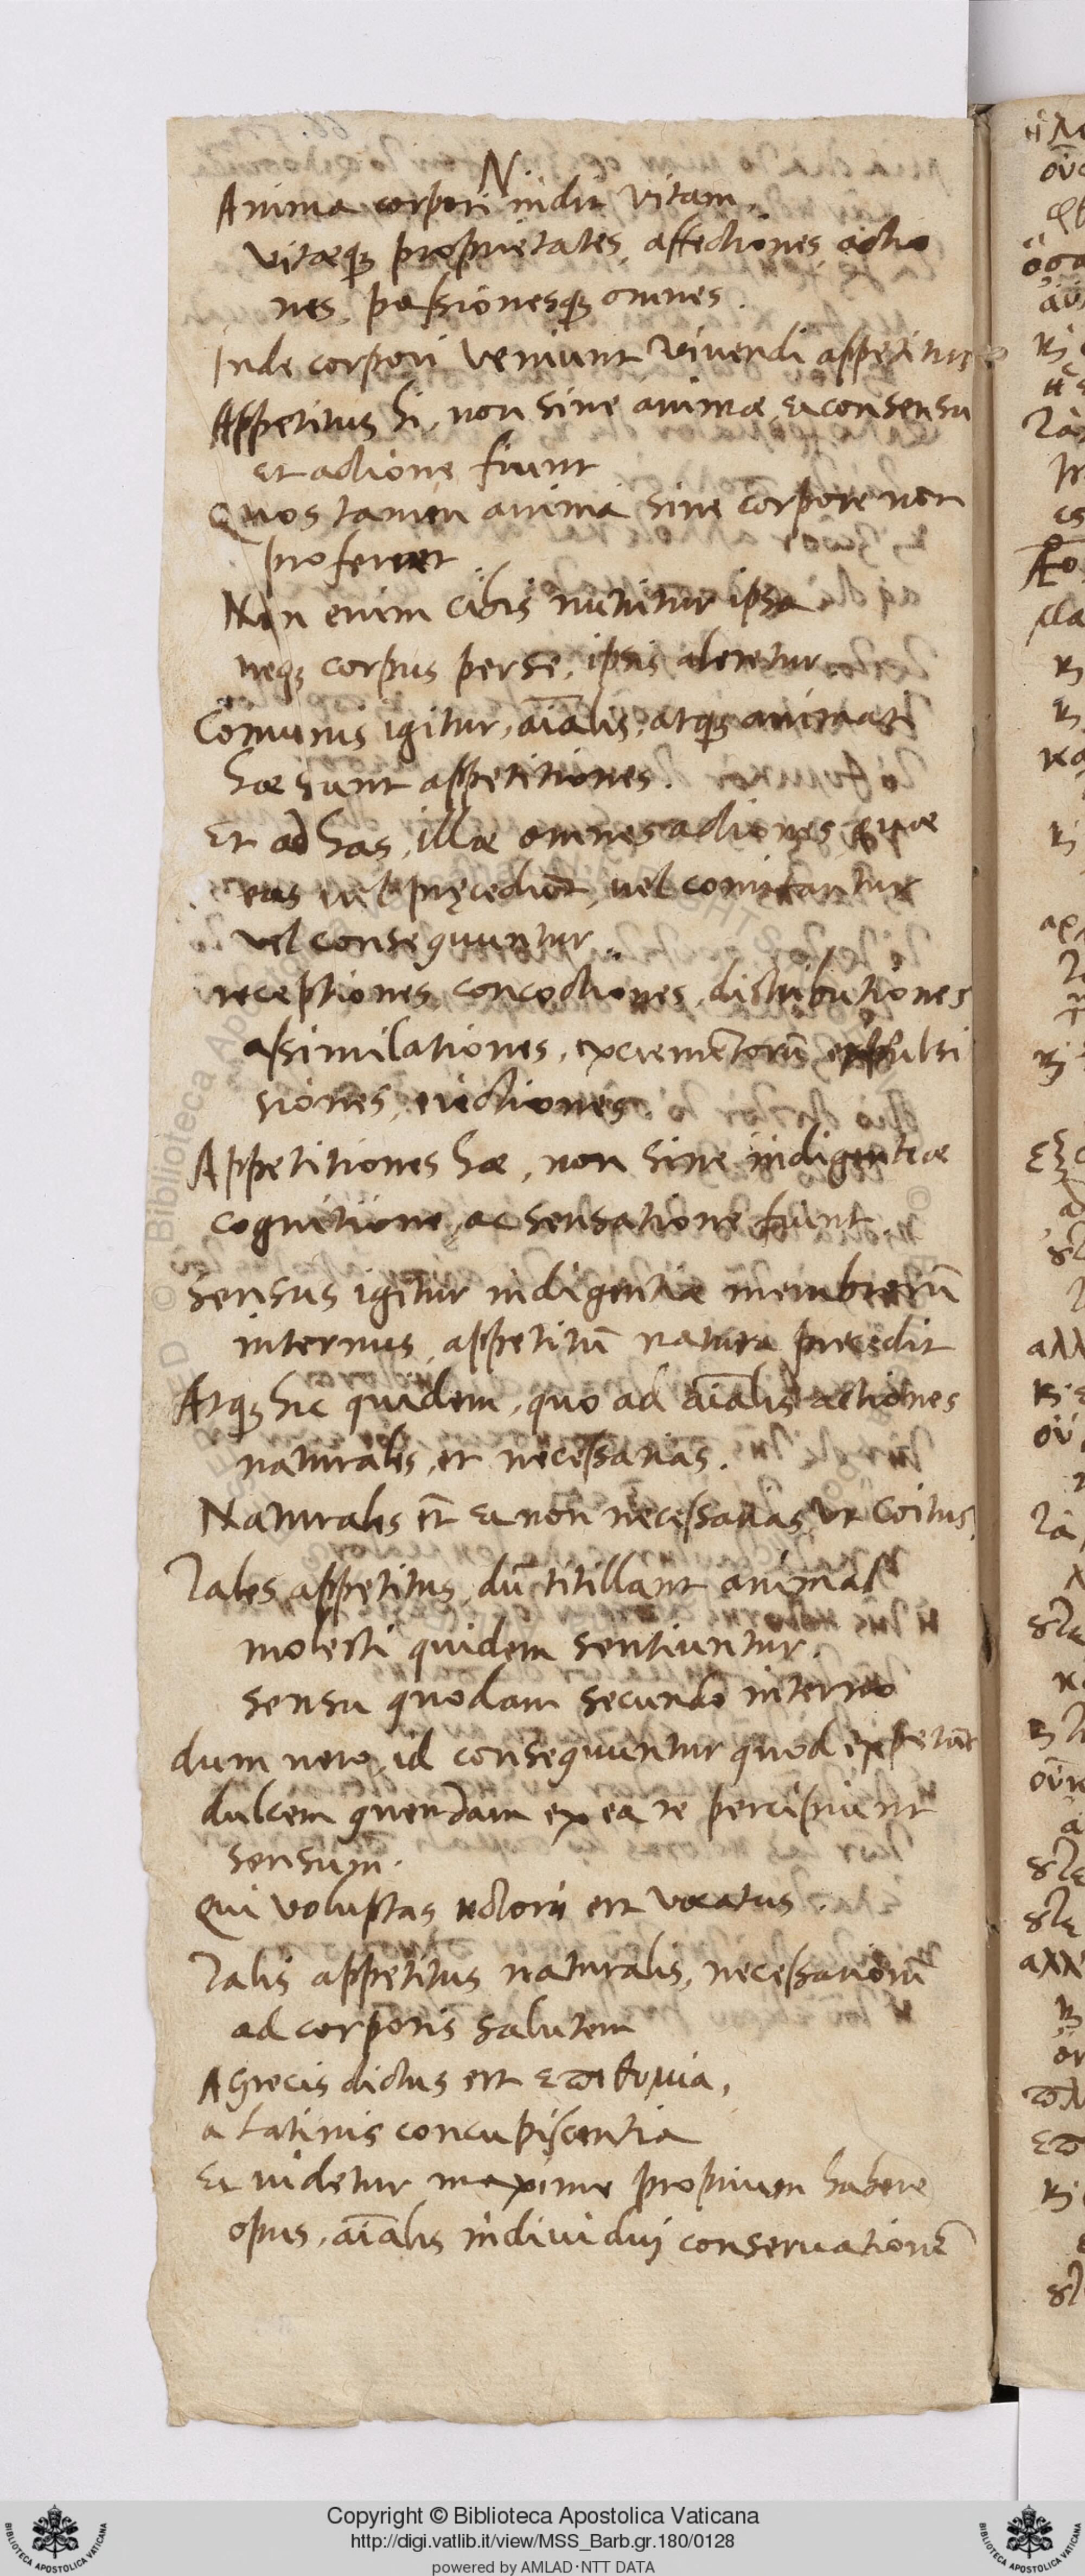 N
Anima corpori indit vitam,
vitæq; proprietates, affectiones, actio
nes, passionesq; omnes.
Inde corpori veniunt vivendi appetitus
Appetitus hi, non sine animæ, & consensu
et actione fiunt
Quos tamen anima sine corpore non
proferret.
Non enim cibis nutritur ipsa
neq; corpus per se, ipsis aleretur.
Comunis igitur, aīalis, atq; animati
hæ sunt appetitiones.
Et ad has, illæ omnes actiones quæ
eas vel pręcedūt, uel comitantur
vel consequuntur.
receptiones, concoctiones, distributiones
assimilationes, excrementorū
siones, eiectiones.
Appetitiones hæ, non sine indigentiæ
cognitione, ac sensatione fiunt.
Sensus igitur indigentiæ membrorū
internus, appetitū natura precedit
Atq; hic quidem, quo ad aīalis actiones
naturales, et necessarias.
Naturales & non necessarias, ut coitus.
Tales appetitus, dū titillant animal
molesti quidem sentiuntur.
sensu quodam secundo interno
dum uero, id consequuntur quod expetūt
dulcem quendam ex ea re percipiunt
sensum.
Qui voluptas est vocatus.
Talis appetitus naturalis, necessariorū
ad corporis salutem
A Grecis dictus est επιθυμια,
a Latinis concupiscentia
Et uidetur maxime proprium habere
opus, aīalis individui conseruationē
Copyright © Biblioteca Apostolica Vaticana
http://digi.vatlib.it/view/MSS_Barb.gr.180/0128
powered by AMLAD·NTT DATA